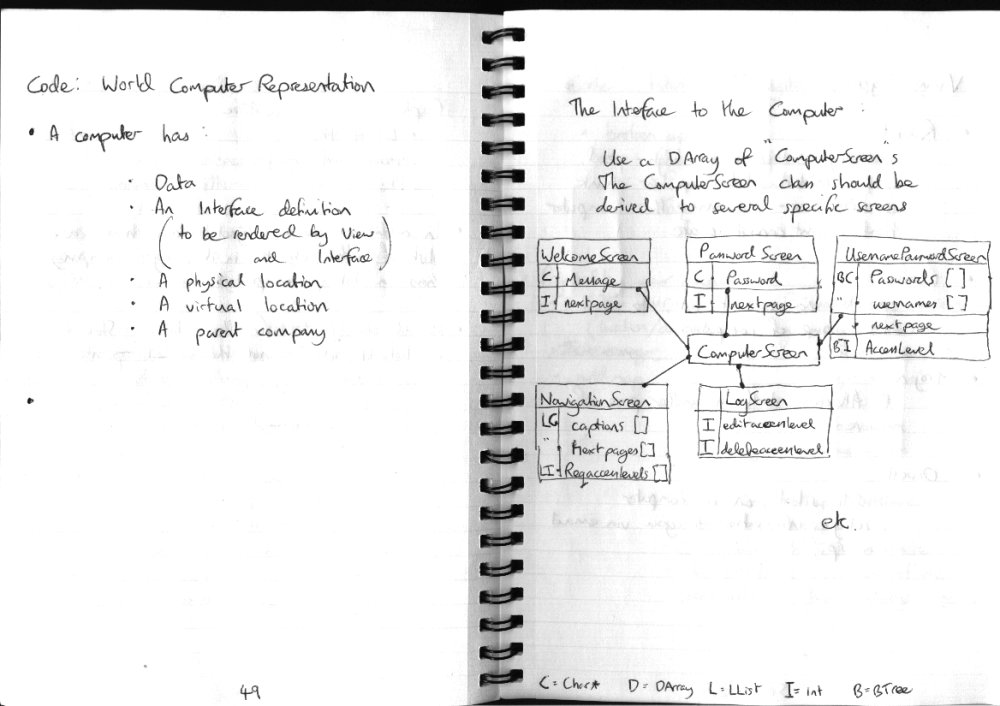 Code: World Computer Representation
• A computer has :
· Data
· An Interface definition
(to be rendered by View
and Interface)
· A physical location
· A virtual location
· A parent company
•
49
The Interface to the Computer :
Use a DArray of "ComputerScreen"s
The ComputerScreen class should be
derived to several specific screens
WelcomeScreen
C Message
I nextpage
Password Screen
C Password
I nextpage
UsernamePasswordScreen
BC Passwords []
" usernames []
nextpage
BI AccessLevel
ComputerScreen
NavigationScreen
LC captions []
" Nextpages []
LI Reqaccesslevels []
LogScreen
I editaccesslevel
I deleteaccesslevel
etc.
C = Char* D = DArray L = LList I = int B = BTree